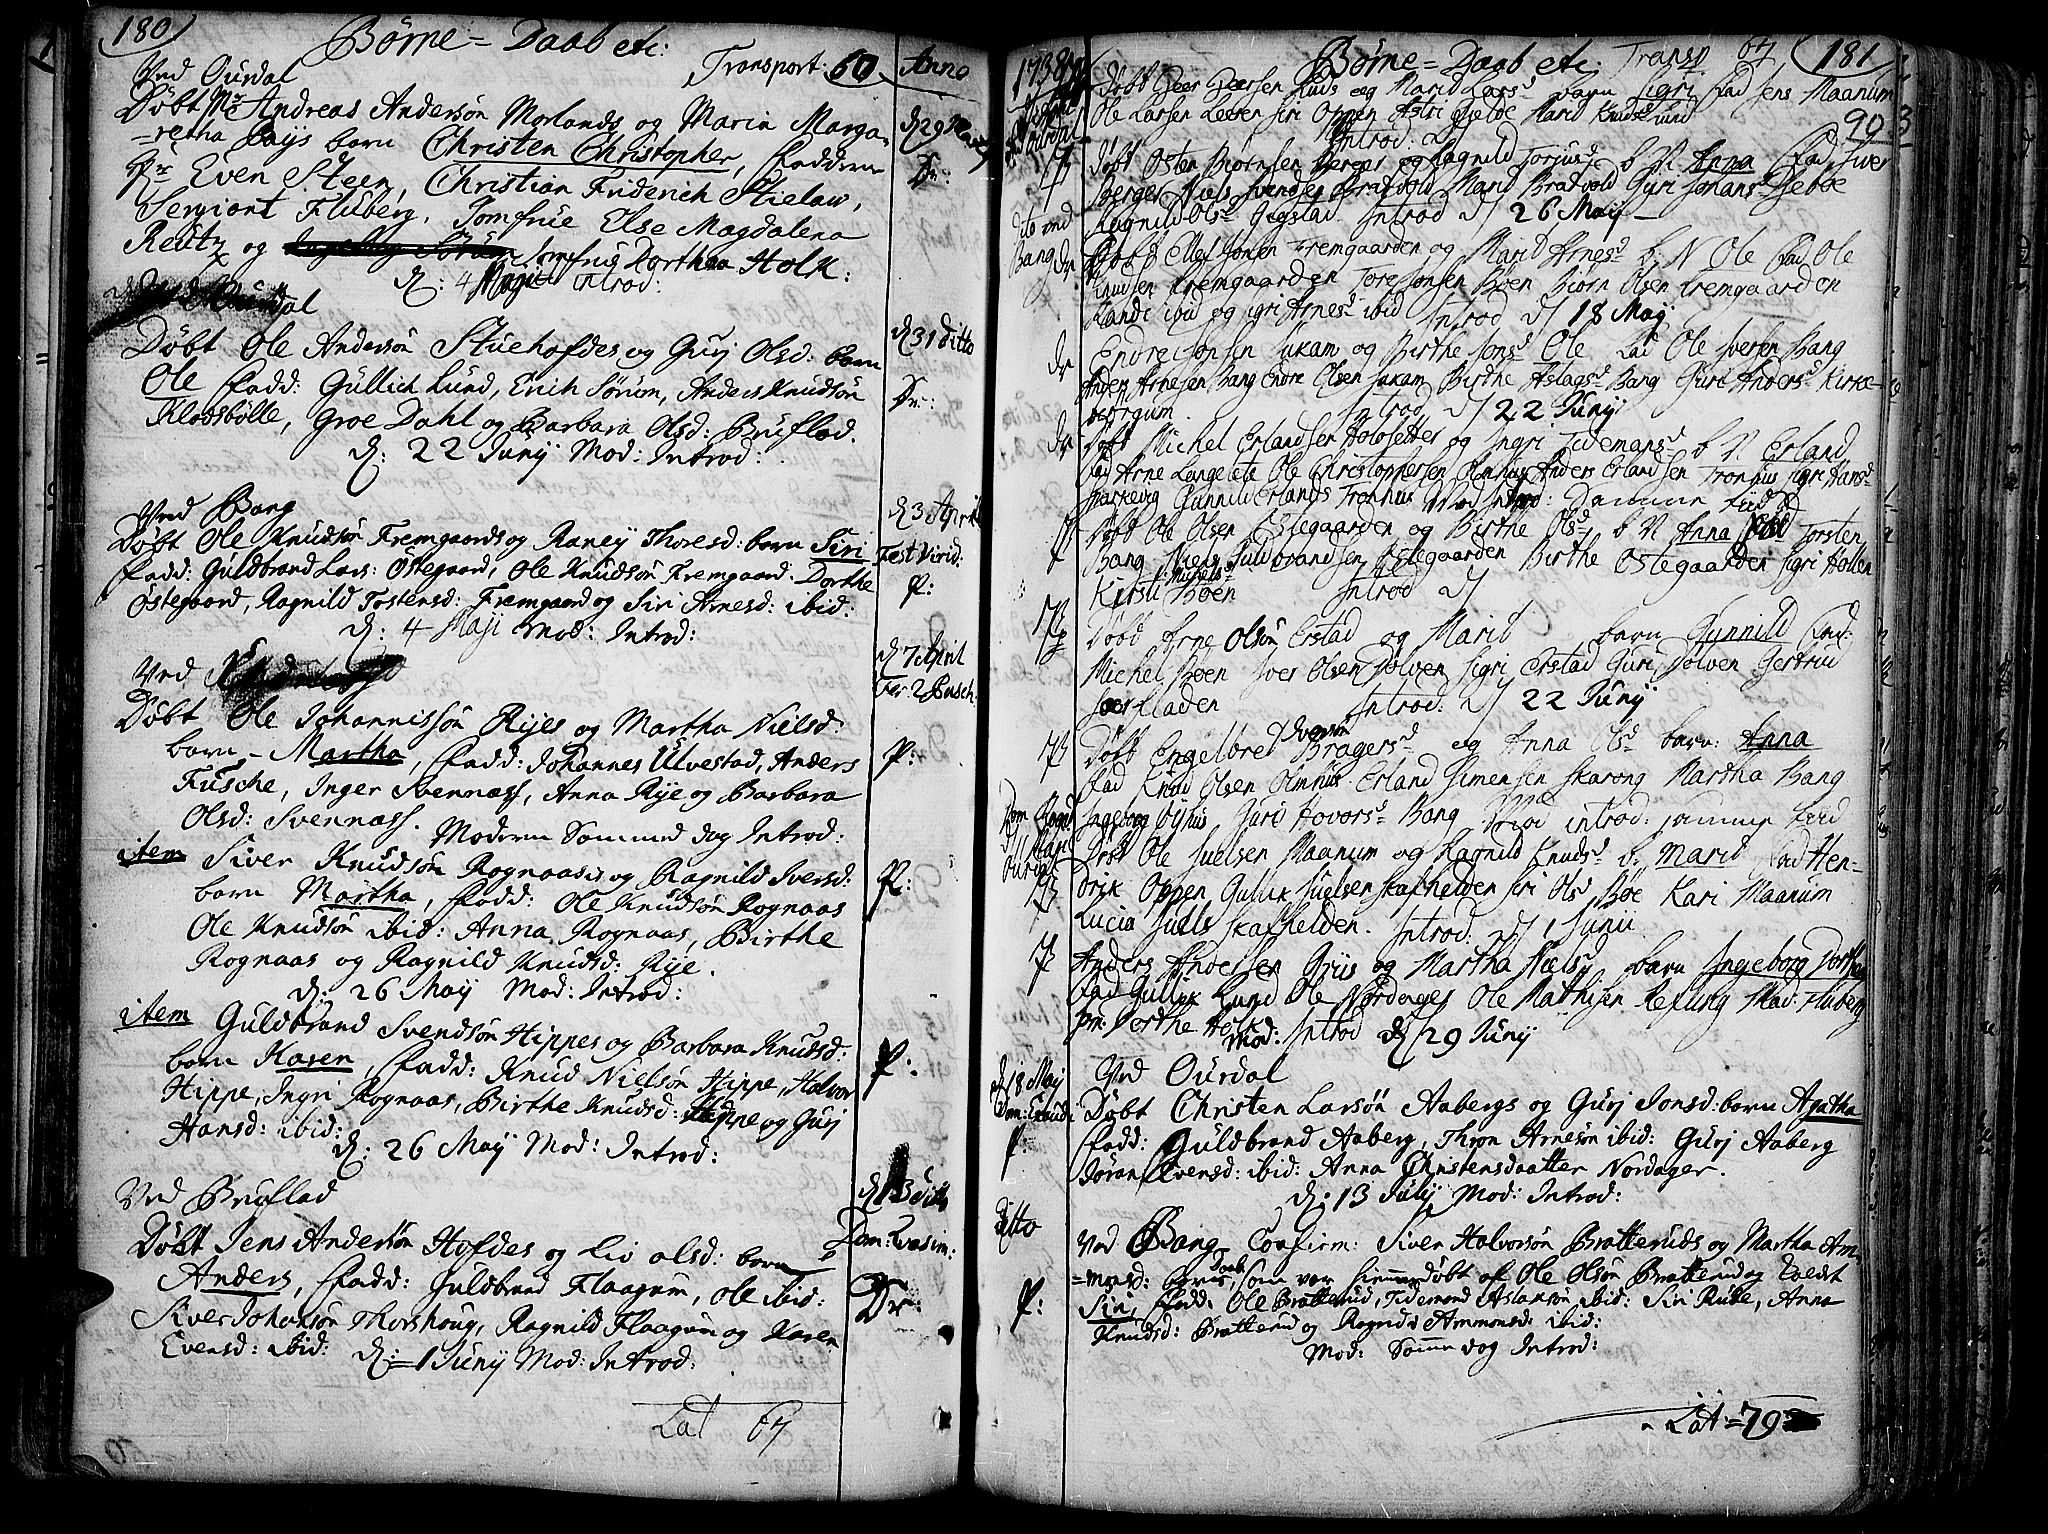 180
Børne = Daab etc:
Transport: 60
Anno
Ved Ourdal
Døbt Mr Andreas Andersøn Morlands og Maria Marga-
=retha Pays barn Christen Christopher, Faddern
Hr Even Steen, Christian Friderich Stielaw,
Sergiant Fluberg, Jomfrue Else Magdalena
Reutz og Jomfrue Dorthea Holk:
d: 4 Maji introd:
d 29 Martj
Dr:
Ourdal
Døbt Ole Andersøn Stuehofdes og Gurj Olsd: barn
Ole Fadd: Gullich Lund, Erich Sørum, Anders Knudsøn
Klodsbølle, Groe Dahl og Barbara Olsd: Bruflad.
d: 22 Junij Mod: Introd:
d 31 Ditto
Dr:
Ved Bang
Døbt Ole Knudsøn Fremgaards og Raney Thoresd: barn Siri
Fadd: Guldbrand Lars: Østegaard, Ole Knudsøn Fremgaard. Dorthe
Østegaard, Ragnild Tostensd: Fremgaard og Siri Arnesd: ibid:
d: 4 Maji Mod: Introd:
d 3 April
Fest Virid:
P:
Ved
Døbt Ole Johannissøn Ryes og Martha Nielsd:
barn - Martha, Fadd: Johannes Ulvestad, Anders
Fusche, Inger Svennæss, Anna Rye og Barbara
Olsd: Svennæss. Moderen Sammed dag Introd:
d 7 April
Fer: 2 Pasch
P:
item Siver Knudsøn Rognaas og Ragnild Iversd:
barn Martha, Fadd: Ole Knudsøn Rognaas
Ole Knudsøn ibid: Anna Rognaas, Birthe
Rognaas og Ragnild Knudsd: Rye.
d: 26 May Mod: Introd:
P:
item Guldbrand Svendsøn Hippes og Barbara Knudsd:
barn Karen, Fadd: Knud Nielsøn Hippe, Halvor
Hippe, Ingri Rognaas, Birthe Knudsd: Hippe og Gurj
Hansd: ibid:
d: 26 May Mod: Introd:
P:
Ved Bruflad
Døbt Jens Andersøn Hofdes og Liv olsd: barn
Anders, Fadd: Guldbrand Flaagum, Ole ibid:
Siver Johansøn Thorshoug, Ragnild Flaagum og Karen
Evensd: ibid: d: 1 Junij Mod: Introd:
d 13 ditto
Dom: Qvasim:
Dr:
Lat 67
1738
Børne = Daab etc: Transp 67
181
Døbt Peer Peersen Lunds og Marit Larsd barn Sigri Fad Jens Maanum
Ole Larsen Leeren Siri Oppen Astri Gjelde Marit Knuds Lund
Introd: d
90
Døbt Osten Biørnsen Berger og Ragnild Torjusd b N Anna Fad Iver
Berger Niels Svendsen Bratvold Marit Bratvold Guri Johansd Hebbe
Ragnild Olsd Gigstad Introd d 26 May
dito ved
Bang
dr
Døbt Elles Jonsen Fremgaarden og Marit Arnesd b: N Ole Fad Ole
Knudsen Fremgaarden Tore Jonsen Bøen Biørn Olsen Fremgaarden
Randi ibid og sigri Arnesd ibid Introd d 18 May
dr
Endre Jonsen Jukam og Birthe Jonsd Ole Fad Ole Iversen Bang
Anders Arnesen Bang Endre Olsen Jukam Birthe Aslagsd Bang Guri Andersd Kirke-
bergum. Introd d 22 Junij
dr
Døbt Michel Erlandsen Holosetter og Ingri Tidemansd b N Erland
Fad Arne Langelete Ole Christophersen Olmhus Anders Erlandsen Tronhus Sigri Hansd
Bakkevig Gunnild Erlands Tronhus Mod Introd: Samme Tiid
Døbt Ole Olsen Østegaarden og Birthe Olsd b N Anna Fad Torsten
Bang Niels Guldbrandsen Østegaarden Birthe Østegaarden Sigri Hollen
Kirsti Michelsd Bøen Introd d
Døbt Arne Olsøn Erstad og Marit barn Gunnild Fad:
Michel Bøen Iver Olsen Jolven Sigri Erstad Guri Jolven Gertrud
Sørfladen Introd: d 22 Junij
Døbt Engelbret Bragersd og Anna Olsd barn: Anna
Fad Knud Olsen Olmhus Erland Simensen Skarong Martha Bang
Ingeborg Viihus Guri Hovorsd Bang Mod introd: samme tiid
Dom Rogat
d 11 Maji
Ourdal
Døbt Ole Juelsen Maanum og Ragnild Knudsd b: Marit Fad Hen-
drik Oppen Gulluk Juelsen Skafhelden Siri Olsd Bøe Kari Maanum
Lucia Juels Skafhelden. Introd: d 1 Junii
Anders Andersen Griis og Martha Nielsd barn Ingeborg Dorthea
Fad Gullik Lund Ole Nordenges Ole Mathisen Refling Mad. Fluberg
Jm: Dorthe Holk Mod: Introd d: 29 Junij
d 18 May
Dom: Exaudi
P:
Ved Ourdal
Døbt Christen Larsøn Aabergs og Gurj Jonsd: barn Agatha
Fadd: Guldbrand Aaberg, Thron Arnesøn ibid: Gurj Aaberg
Jøran Evensd: ibid: Anna Christensdaatter Nordager.
d: 13 Julij Mod: Introd:
ditto
P:
Ved Bang Confirm: Siver Halvorsøn Bratteruds og Martha Am-
=monsd: barns Daab, som var hiemmedøbt af Ole Olsøn Bratterud og kaldt
Siri, Fadd: Ole Bratterud, Tidemand Aslaksøn ibid: Siri Rübe, Anna
Knudsd: Bratterud og Ragnild Ammonsd: ibid:
Mod: Samme dag Introd:
Lat = 79